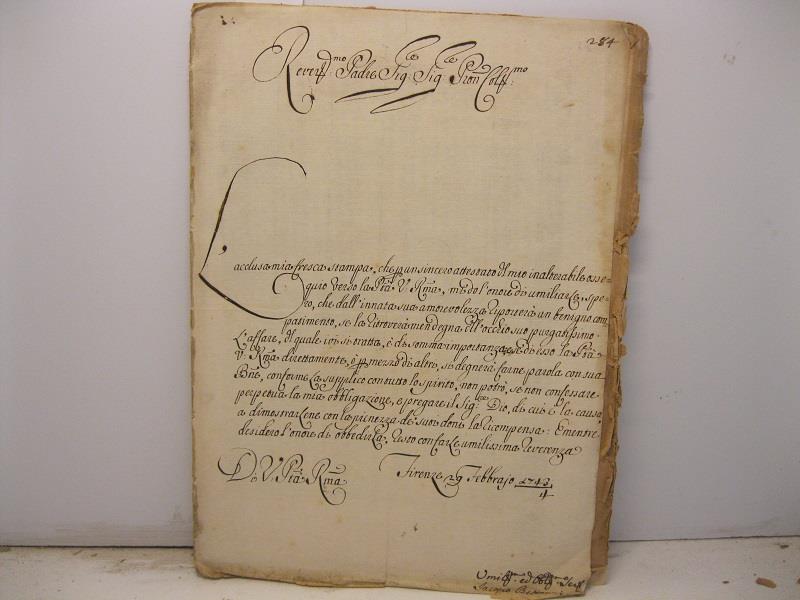 284
Reverſſ.mo Padre Sig.re Sig.re Pron Colſſ.mo
L'acclusa mia fresca stampa, che p un sincero attestato del mio inalterabile osse=
quio verso la Ptà V. Rma, mi do l'onore di umiliarle, spe=
ro, che dall'innata sua amorevolezza riporterà un benigno com=
patimento, se la ritroverà men degna dell'occhio suo purgatissimo.
L'affare, del quale ivi si tratta, è di somma importanza, e se di esso la Ptà
V. Rma direttamente, ò p mezzo di altre, si degnerà farne parola con sua
Bne, conforme la supplico con tutto lo spirito, non potrò, se non confessare
perpetua la mia obbligazione, e pregare il Sig.re Dio, di cui è la causa,
a dimostrarlene con la pienezza de' suoi doni la ricompensa: E mentre
desidero l'onore di obbedirla, resto con farle umilissima reverenza
Di V. Ptà Rma
Firenze 29 Febbrajo 1743/4
Umilſſ. ed Obblſſ.
Jacopo